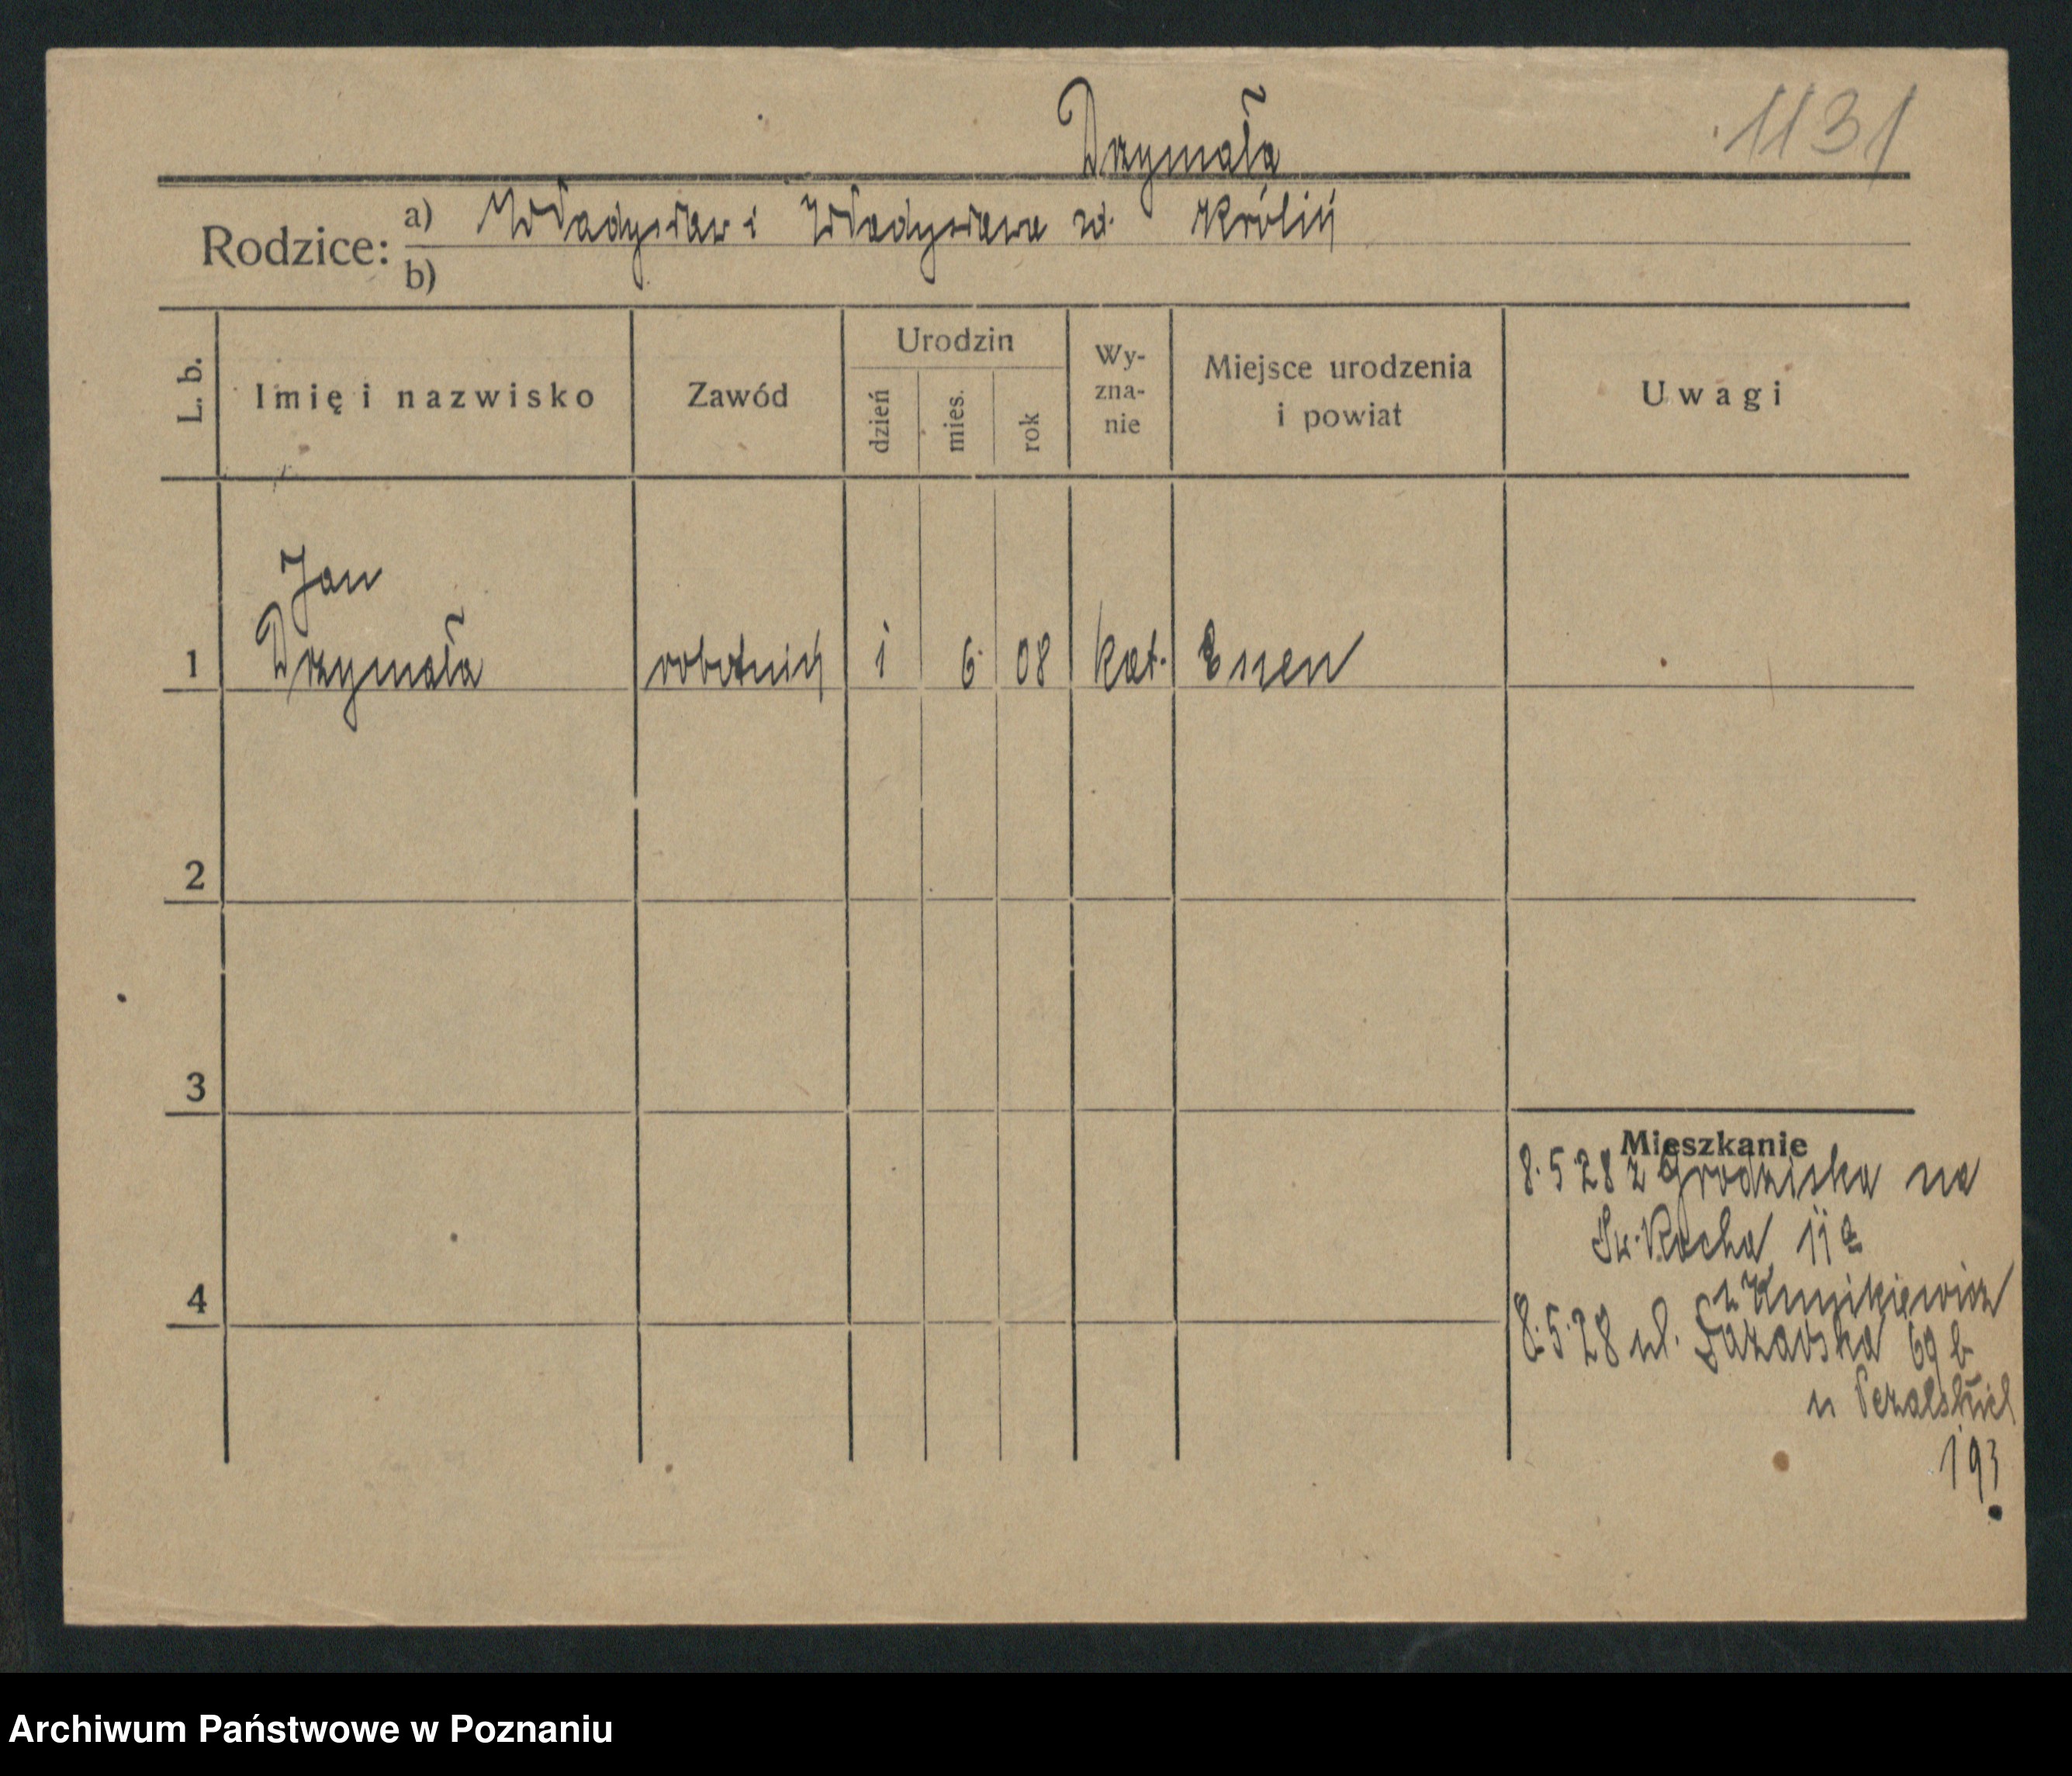 Drzymała
1131
Rodzice: a) Władysław i Władysława zd. Królik
b)
L. b. Imię i nazwisko Zawód Urodzin dzień mies. rok Wy-zna-nie Miejsce urodzenia i powiat Uwagi
Jan
1 Drzymała robotnik 1 6. 08 kat. Essen
2
3
Mieszkanie
8.5 28 z Grodziska na
Św. Rocha 11a
4
8.5.28 ul. 69 b
u
193
Archiwum Państwowe w Poznaniu